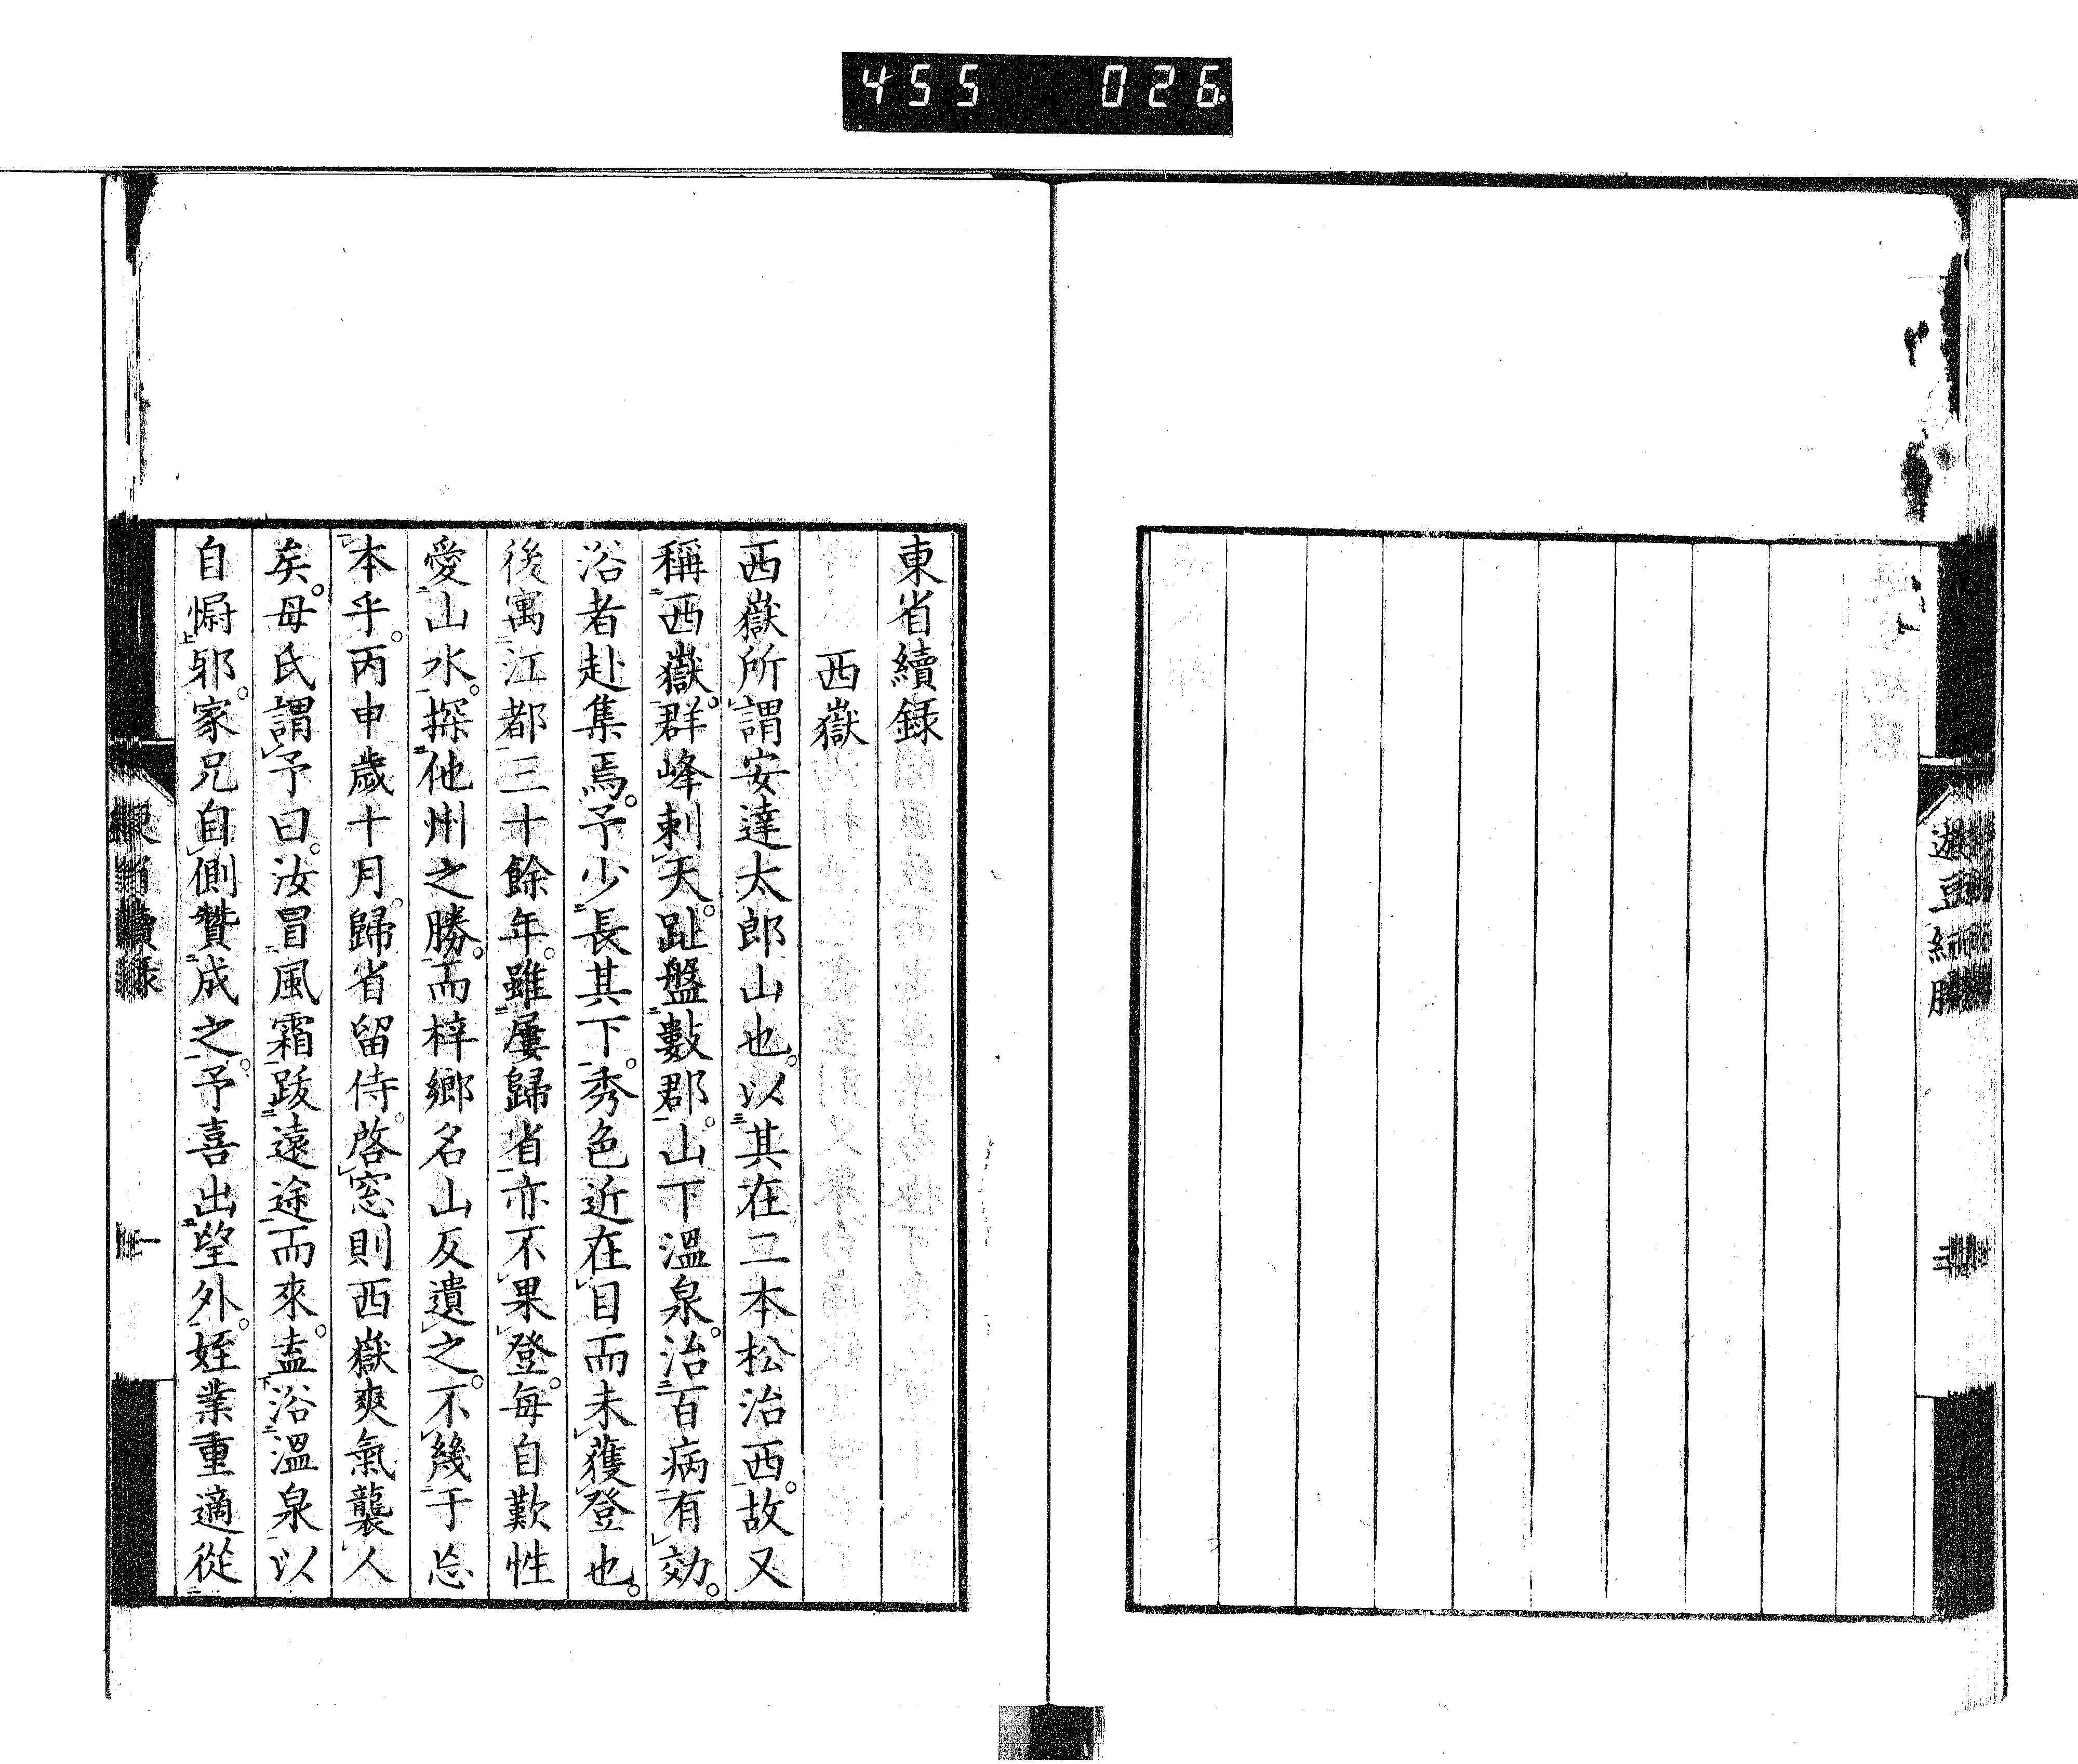 455 026.
遊豆紀勝
東省續録
西嶽
西嶽所謂安達太郎山也。以其在二本松治西。故又
稱西嶽。群峰刺天。趾盤數郡。山下溫泉。治百病有効。
浴者赴集焉。予少長其下。秀色近在目而未獲登也。
後寓江都三十餘年。雖屢歸省亦不果登。每自歎性
愛山水。探他州之勝。而梓鄉名山反遺之。不幾于忘
本乎。丙申歲十月。歸省留侍。啓窓則西嶽爽氣襲人
矣。母氏謂予曰。汝冒風霜跋遠途而來。盍浴溫泉以
自慰邪。家兄自側贊成之。予喜出望外。姪業重適從
東省續録
一